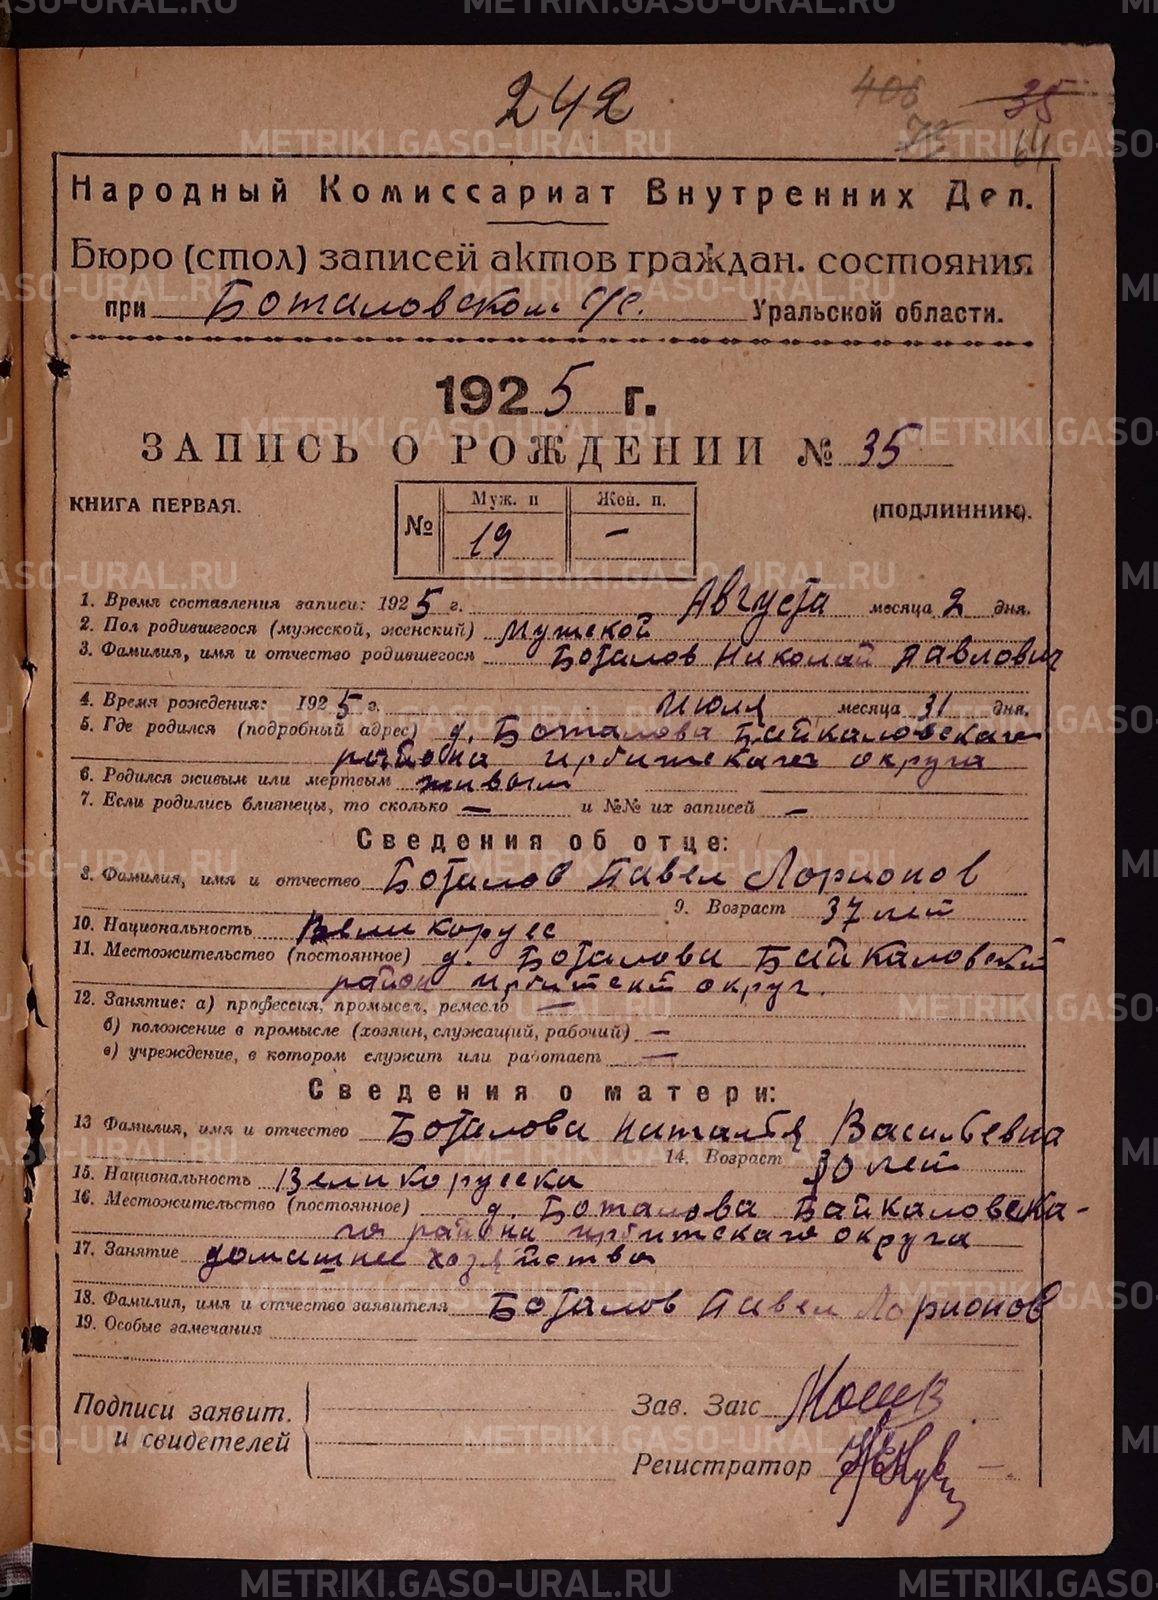 METRIKI.GASO-URAL.RU
242
406 35
72 64
Народный Комиссариат Внутренних Дел.
Бюро (стол) записей актов граждан. состояния
при Боталовском с/с. Уральской области.
1925 г.
ЗАПИСЬ О РОЖДЕНИИ № 35
КНИГА ПЕРВАЯ. № Муж. п Жен. п. (ПОДЛИННИК).
19 –
1. Время составления записи: 1925 г. Августа месяца 2 дня.
2. Пол родившегося (мужской, женский) Мужской
3. Фамилия, имя и отчество родившегося Боталов Николай Павлович
4. Время рождения: 1925 г. Июля месяца 31 дня.
5. Где родился (подробный адрес) д. Боталова Байкаловскаго
района Ирбитскаго округа
6. Родился живым или мертвым живым
7. Если родились близнецы, то сколько — и №№ их записей —
Сведения об отце:
8. Фамилия, имя и отчество Боталов Павел Ларионов
9. Возраст 37 лет
10. Национальность Великорусс
11. Местожительство (постоянное) д. Боталова Байкаловский
район Ирбитскт округ.
12. Занятие: а) профессия, промысел, ремесло —
б) положение в промысле (хозяин, служащий, рабочий) —
в) учреждение, в котором служит или работает —
Сведения о матери:
13 Фамилия, имя и отчество Боталова Наталья Васильевна
14. Возраст 30 лет
15. Национальность Великорусска
16. Местожительство (постоянное) д. Боталова Байкаловска-
го района Ирбитскаго округа
17. Занятие домашнее хозяйство
18. Фамилия, имя и отчество заявителя Боталов Павел Ларионов
19. Особые замечания
Подписи заявит. Зав. Загс
и свидетелей
Регистратор